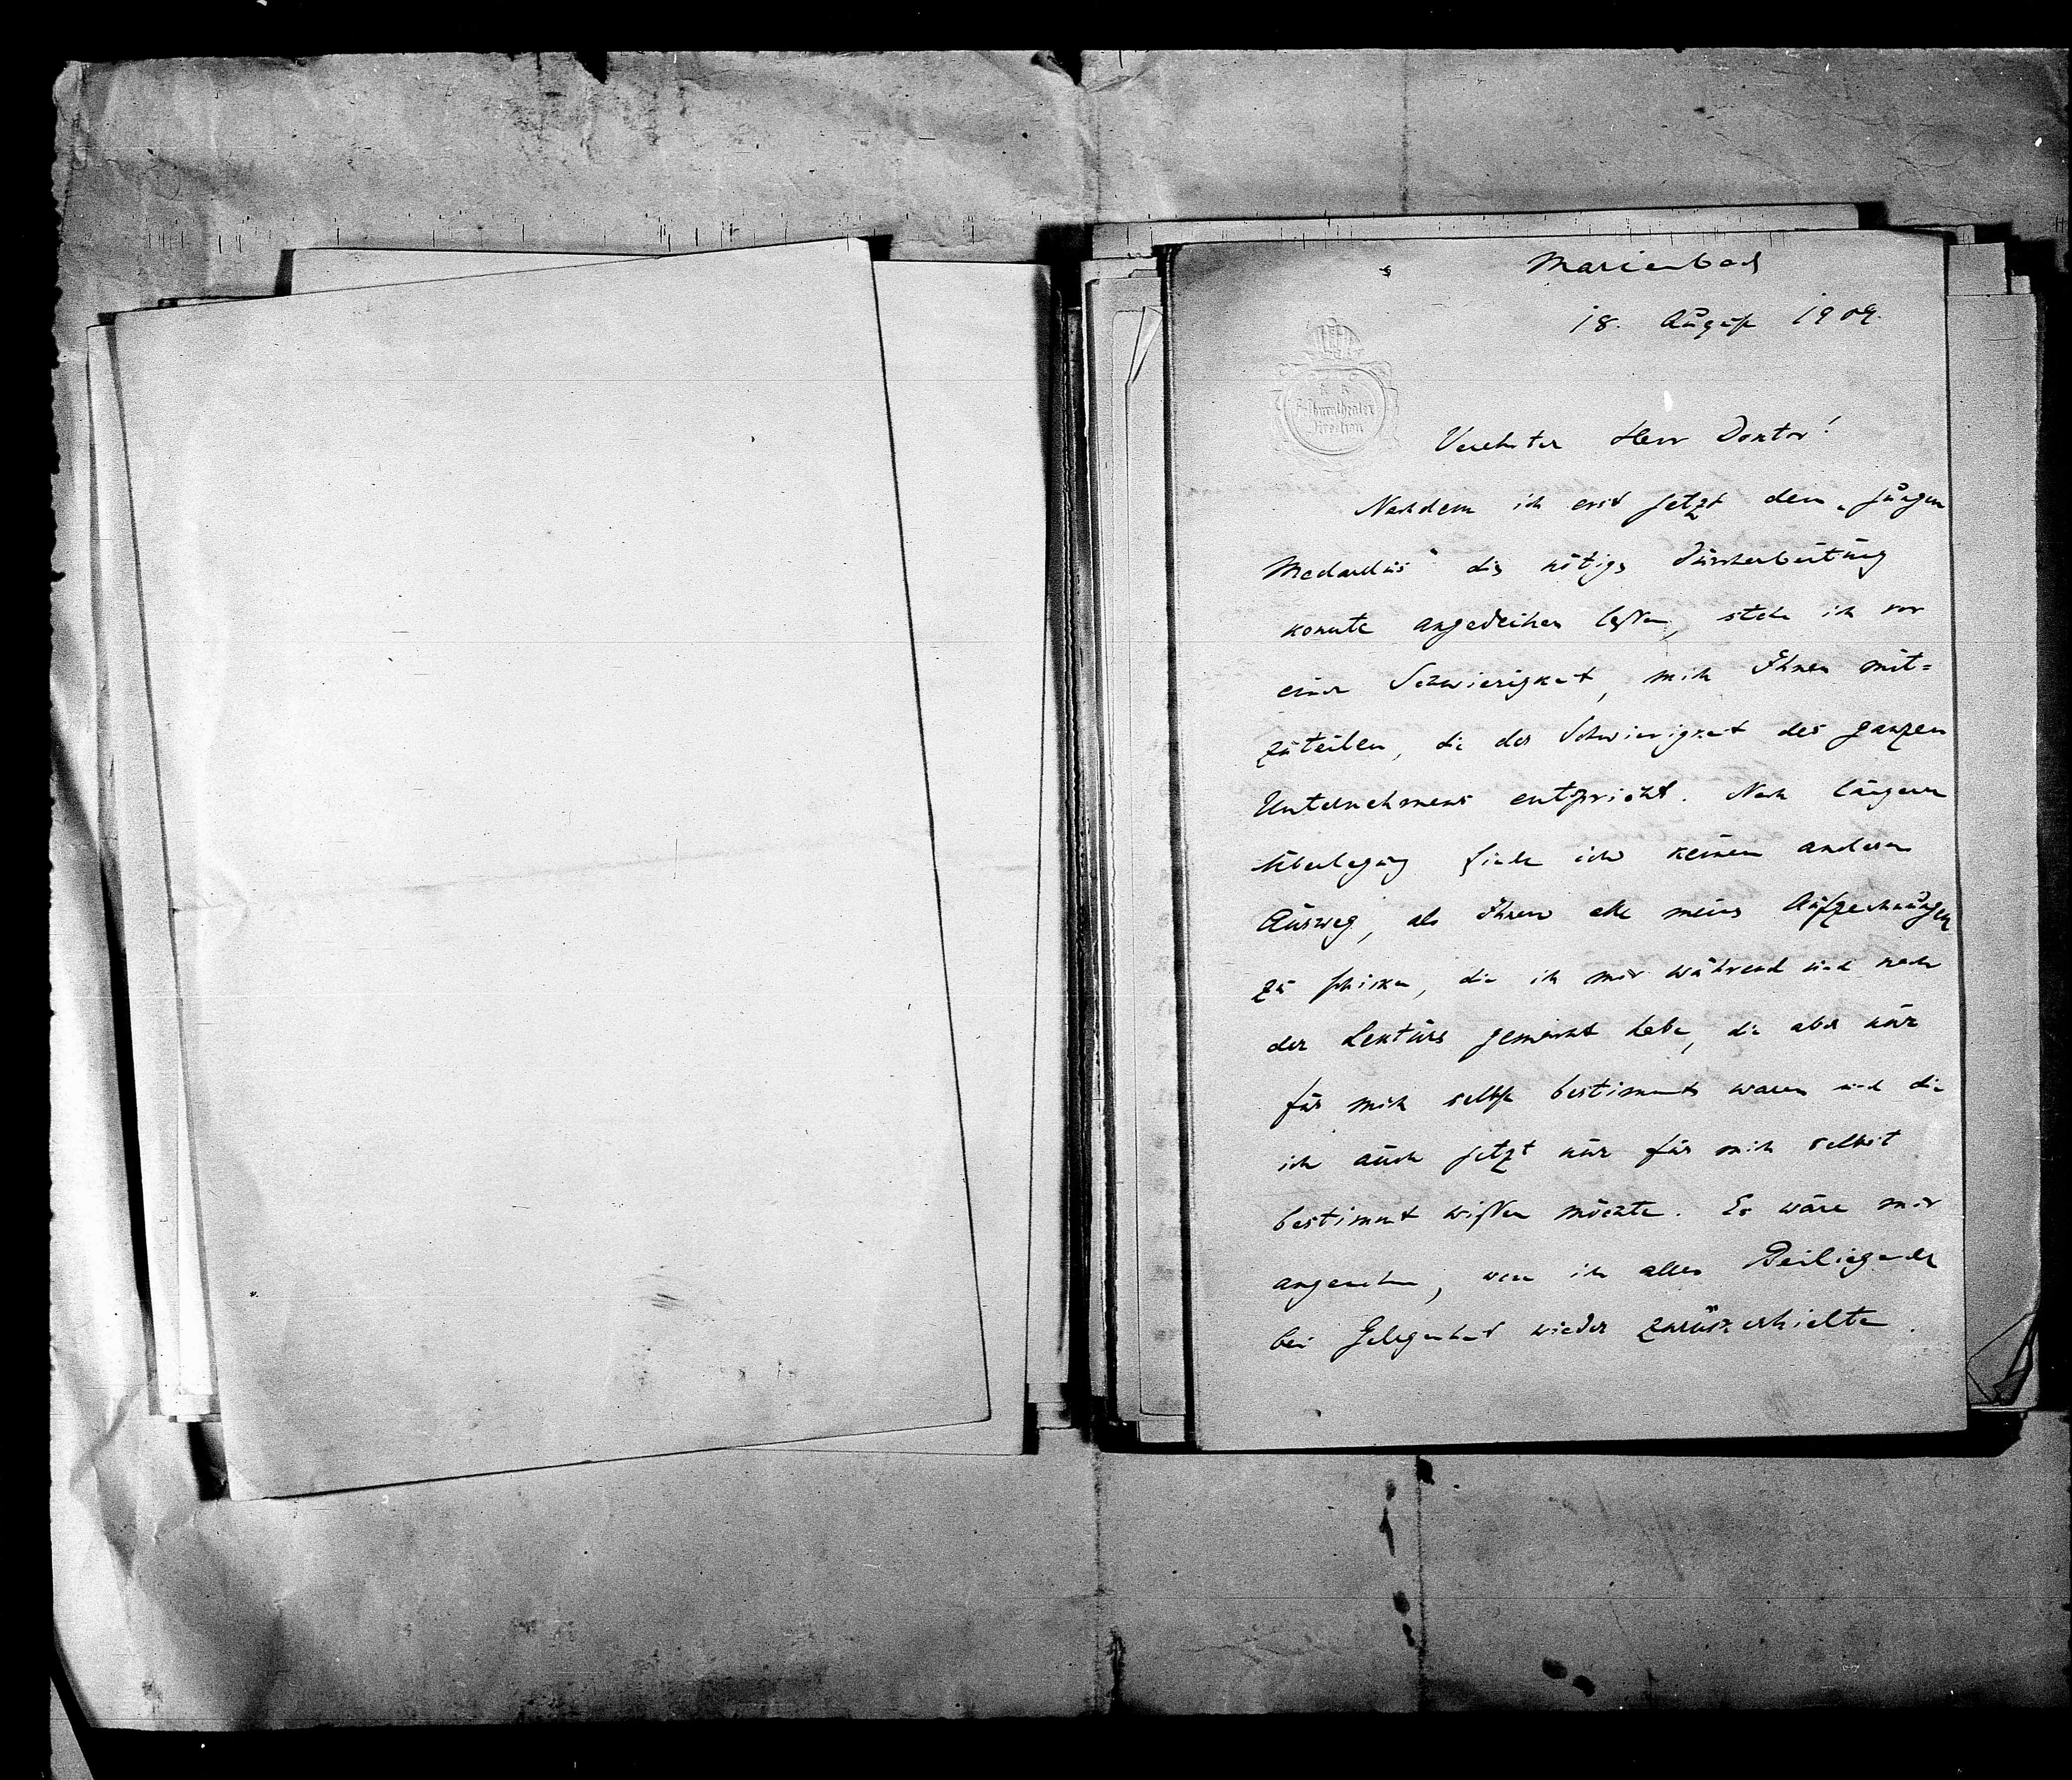 Marienbad
18. August 1909.
K. K.
Hofburgtheater
Direction
Verehrter Herr Doktor!
Nachdem ich erst jetzt dem „jungen
Medardus“ die nötige Durcharbeitung
konnte angedeihen lassen, stehe ich vor
einer Schwierigkeit, mich Ihnen mit=
zuteilen, die der Schwierigkeit des ganzen
Unternehmens entspricht. Nach längerer
Überlegung finde ich keinen anderen
Ausweg, als Ihnen alle meine Aufzeichnungen
zu schicken, die ich mir während und nach
der Lektüre gemacht habe, die aber nur
für mich selbst bestimmt waren und die
ich auch jetzt nur für mich selbst
bestimmt wissen möchte. Es wäre mir
angenehm, wenn ich alles Beiliegende
bei Gelegenheit wieder zurückerhielte.